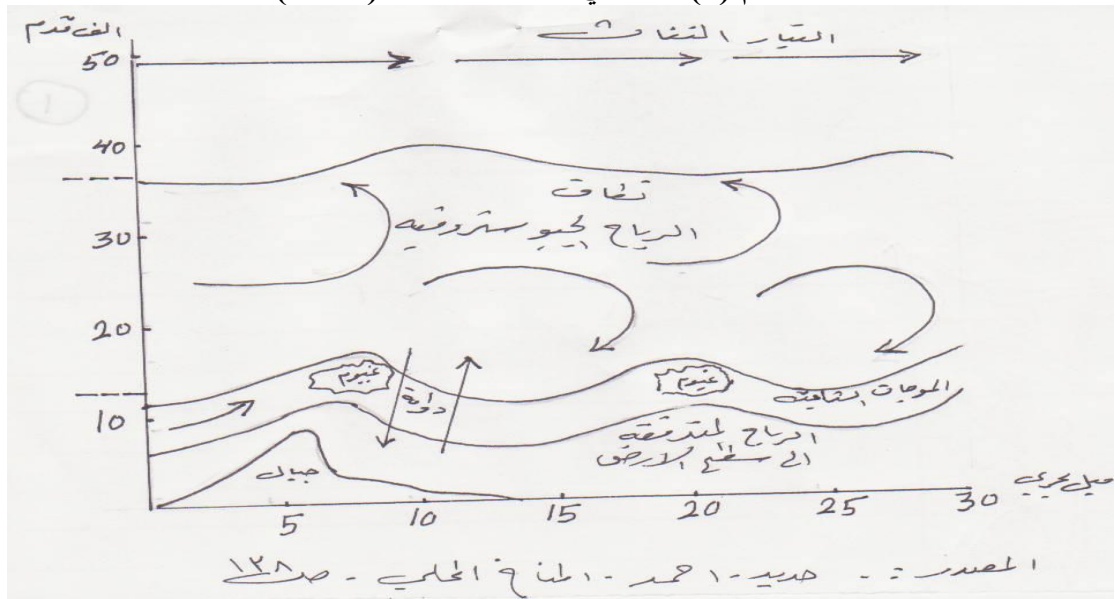 الف قدم
التيار النفاث
50
40
30
20
10
١
نطاق
الرياح الجيوستروفية
غيوم
دوامة
غيوم
الموجات الثابتة
الرياح المتدفقة
الى سطح الارض
جبال
5 10 15 20 25 30
ميل بحري
المصدر :- حديد - احمد - المناخ المحلي - ص ١٣٨